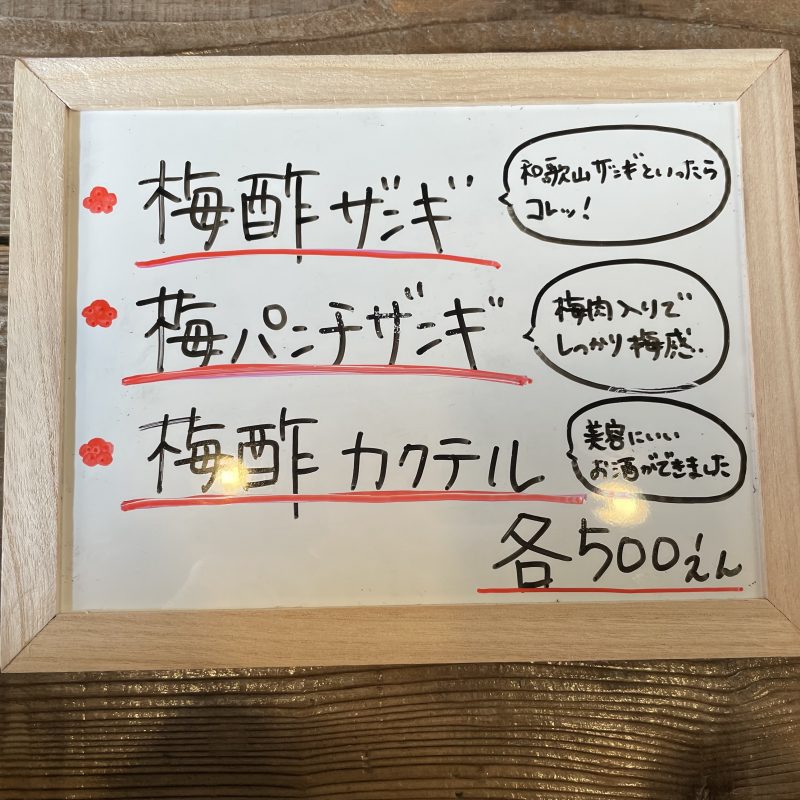 梅酢ザンギ
和歌山ザンギといったら
コレッ!
梅パンチザンギ
梅肉入りで
しっかり梅感.
梅酢カクテル
美容にいい
お酒ができました
各500えん